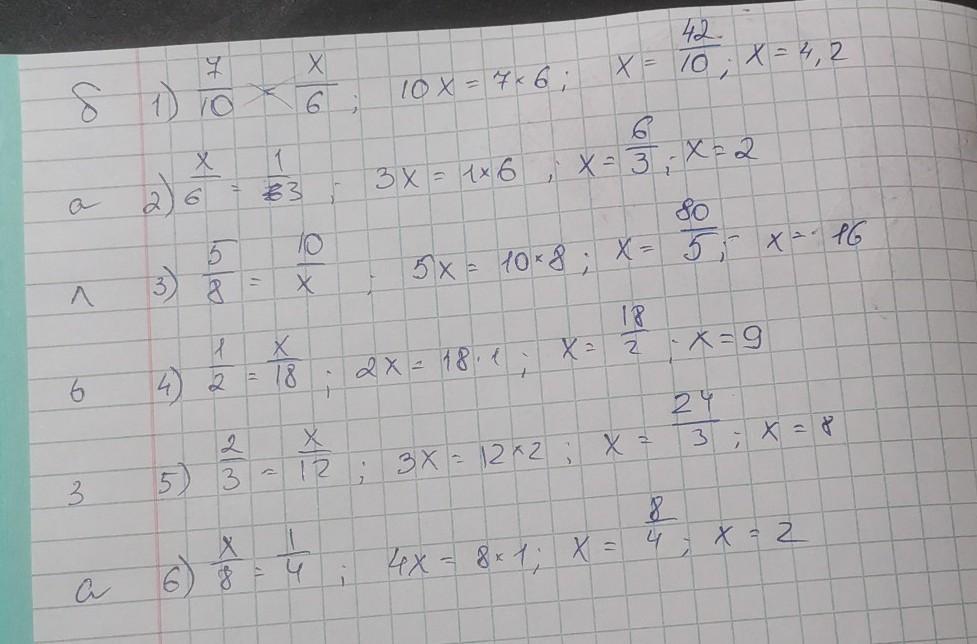 б 1) 7/10 = x/6 ; 10x = 7×6 ; x = 42/10 ; x = 4,2
а 2) x/6 = 1/3 ; 3x = 1×6 ; x = 6/3 ; x = 2
л 3) 5/8 = 10/x ; 5x = 10×8 ; x = 80/5 ; x = 16
в 4) 1/2 = x/18 ; 2x = 18·1 ; x = 18/2 ; x = 9
з 5) 2/3 = x/12 ; 3x = 12×2 ; x = 24/3 ; x = 8
а 6) x/8 = 1/4 ; 4x = 8×1 ; x = 8/4 ; x = 2